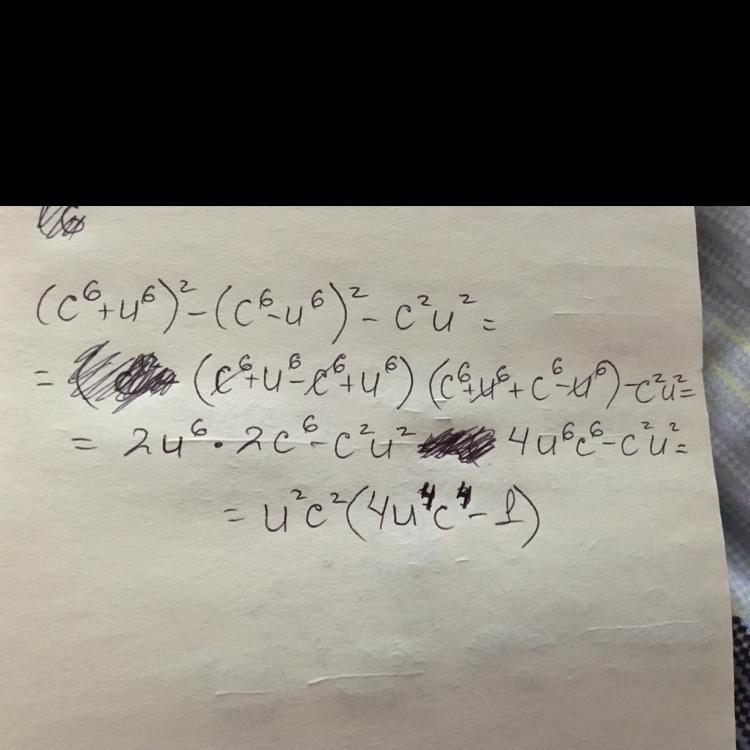 (c⁶+u⁶)²-(c⁶-u⁶)²-c²u²=
= (c⁶+u⁶-c⁶+u⁶)(c⁶+u⁶+c⁶-u⁶)-c²u²=
= 2u⁶·2c⁶-c²u² 4u⁶c⁶-c²u²=
= u²c²(4u⁴c⁴-1)